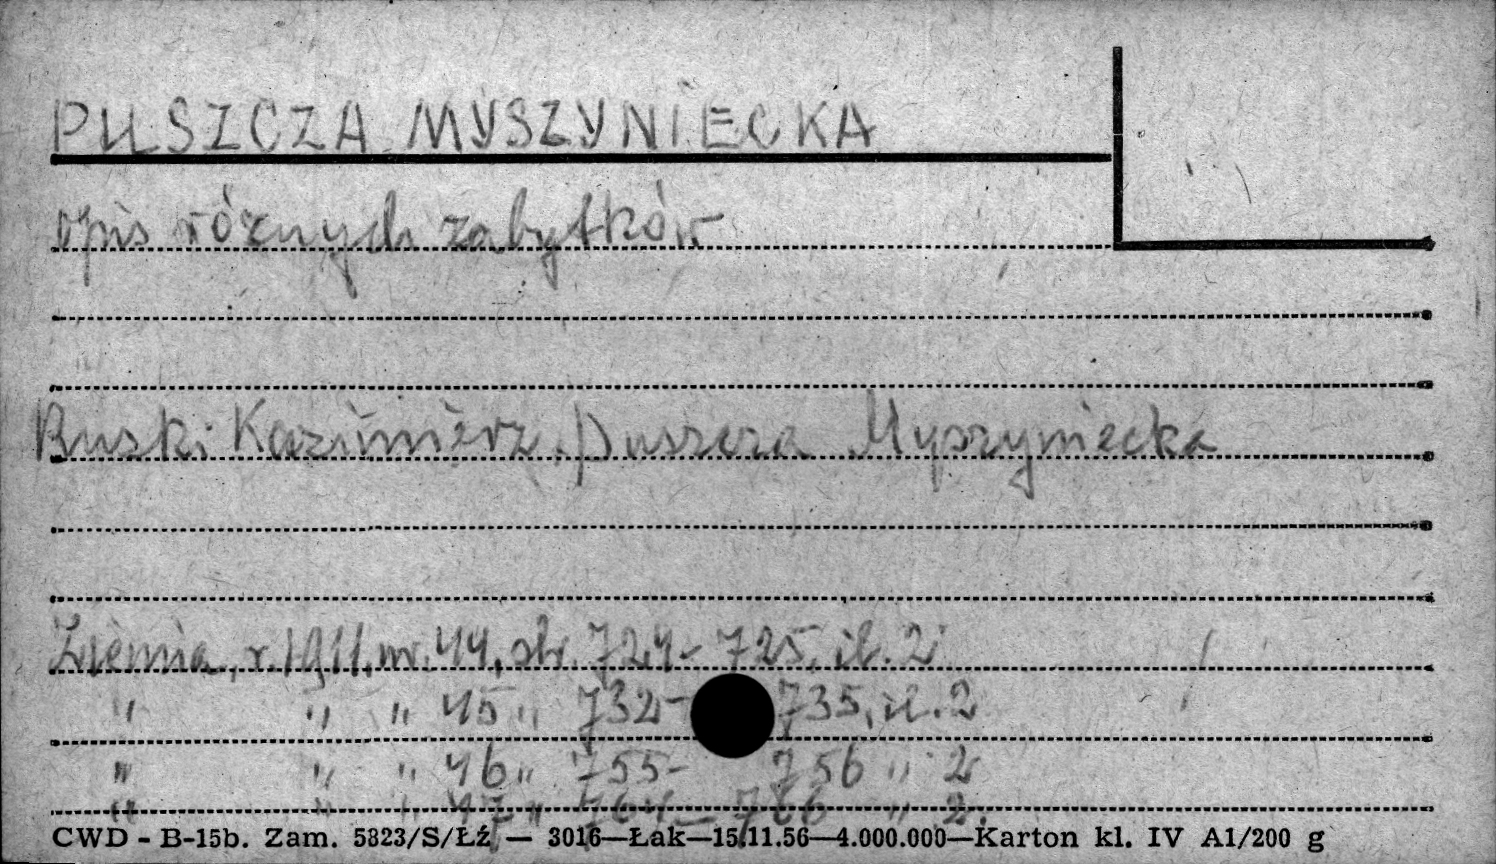 PUSZCZA MYSZYNIECKA
opis różnych zabytków
Ruski Kazimierz, Puszcza Myszyniecka
Ziemia, r. 1911, nr. 44, str. 724-725, il. 2
" " " 45 " 732-735, il. 2
" " " 46 " 755-756 " 2
" " " 47 " 764-766 " 2.
CWD - B-15b. Zam. 5823/S/Łź — 3016—Łak—15.11.56—4.000.000—Karton kl. IV A1/200 g